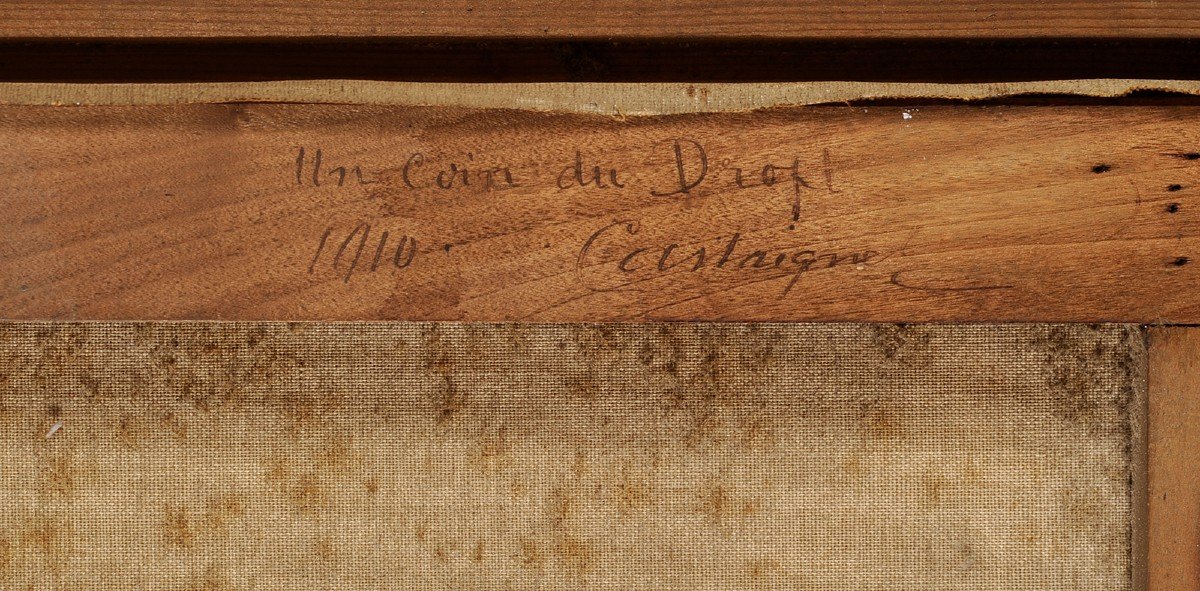 Un Coin du Dropt
1910. Castaigne